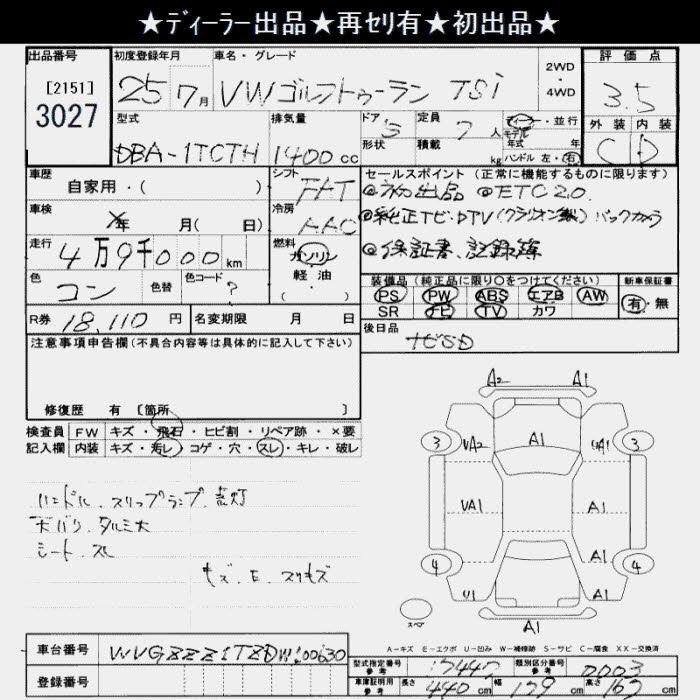 ★ディーラー出品★再セリ有★初出品★
出品番号
[2151]
3027
初度登録年月
25 7月
車名・グレード
VW ゴルフトゥーラン TSi
2WD
・
4WD
評価点
3.5
型式
DBA-1TCTH
排気量
1400 cc
ドア
5
形状
定員
7人
積載
kg
ディーラー・並行
モデル
年式 年
ハンドル 左・右
外装 内装
C D
車歴
自家用・( )
シフト
FAT
車検
年 月( 日)
冷房
AAC
走行
4万9千000km
燃料
ガソリン
軽・油
( ・ )
色
コン
色替
色コード
?
セールスポイント(正常に機能するものに限ります)
◎ETC2.0
◎純正ナビ・DTV(クラリオン製) バックカメラ
◎保証書、記録簿
装備品(純正品に限り〇をつけてください)
PS PW ABS エアB AW
SR ナビ TV カワ
新車保証書
有・無
R券 18,110円
名変期限 月 日
後日品
ナビSD
注意事項申告欄(不具合内容等は具体的に記入して下さい)
修復歴 有 [箇所 ]
検査員
記入欄
FW キズ・飛石・ヒビ割・リペア跡・×要
内装 キズ・汚レ・コゲ・穴・スレ・キレ・破レ
ハンドル、スリップランプ、点灯
天バリ、タルミ大
シート、スレ
キズ、E、スリキズ
A2 A1
3 UA2 A1 UA1 3
UA1 A1
A1
4 U1 A1 4
A1
スペア
A-キズ E-エクボ U-凹み W-補修跡 S-サビ C-腐食 XX-交換済
車台番号
WVGZZZ1TZDW100630
登録番号
型式指定番号
参考
17447
類別区分番号
参考
0003
車庫証明用
参考
長さ 440cm 幅 179cm 高さ 167cm